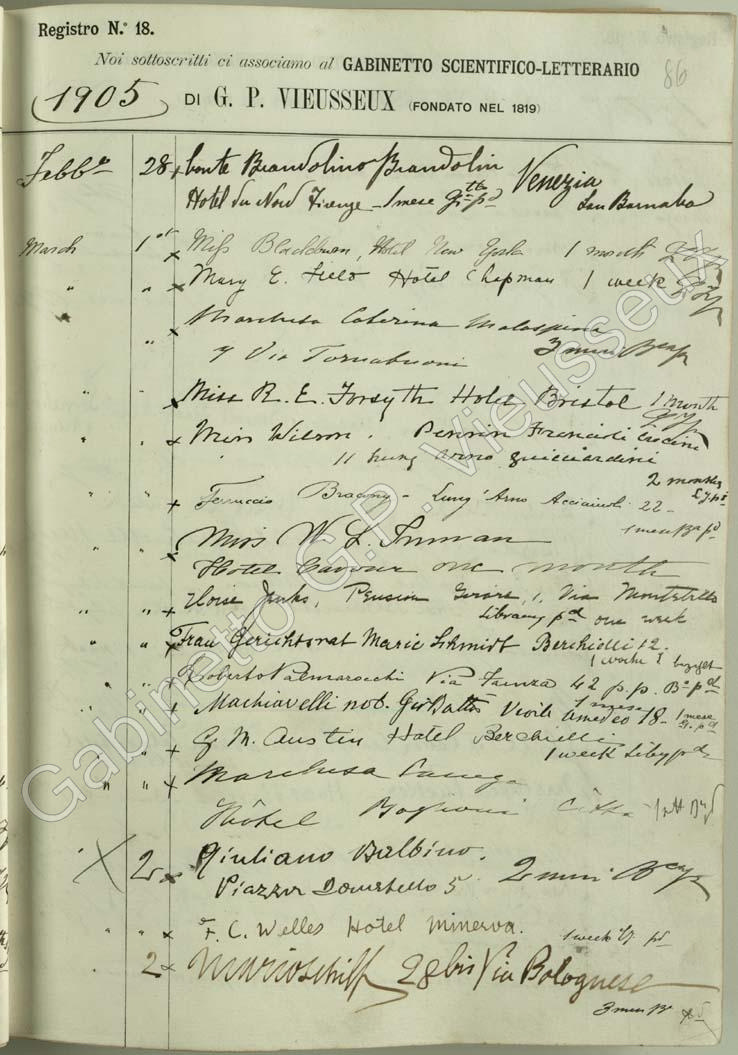 Registro N.º 18.
86
Noi sottoscritti ci associamo al GABINETTO SCIENTIFICO-LETTERARIO
1905 DI G. P. VIEUSSEUX (FONDATO NEL 1819)
Febb 28 Conte Brandolino Brandolin Venezia
Hotel du Nord Firenze - 1 mese San Barnaba
March 1st Miss Blackburn, Hotel New York 1 month
" " Mary E. Field Hotel Chapman 1 week
" Marchesa Caterina Malaspina
7 Via Tornabuoni 3 mesi
" Miss R. E. Forsyth Hotel Bristol 1 month
" " Miss Wilson. Pension
11 Lung Arno Guicciardini
2 months
" " Ferruccio - Lung' Arno Acciaiuoli 22 -
1 mese
" " Miss W. L. Inman
Hotel Cavour one month
" " Pension 1, Via Montebello
Library pd one week
" " Frau Gerichtsrat Marie Schmidt Berchielli 12.
1 woche
" " Roberto Palmarocchi Via Faenza 42 p.p.
1 mese
" " Machiavelli not. Gio Batta Amedeo 18 - 1 mese
" " G. M. Austin Hotel Berchielli
1 week
" " Marchesa
Hôtel Città
" 2 Giuliano Balbino.
Piazza Donatello 5 2 mesi
" " F. C. Welles Hotel Minerva.
1 week
" 2 Mario Schiff 28 bis Via Bolognese
3 mesi
Gabinetto G.P. Vieusseux